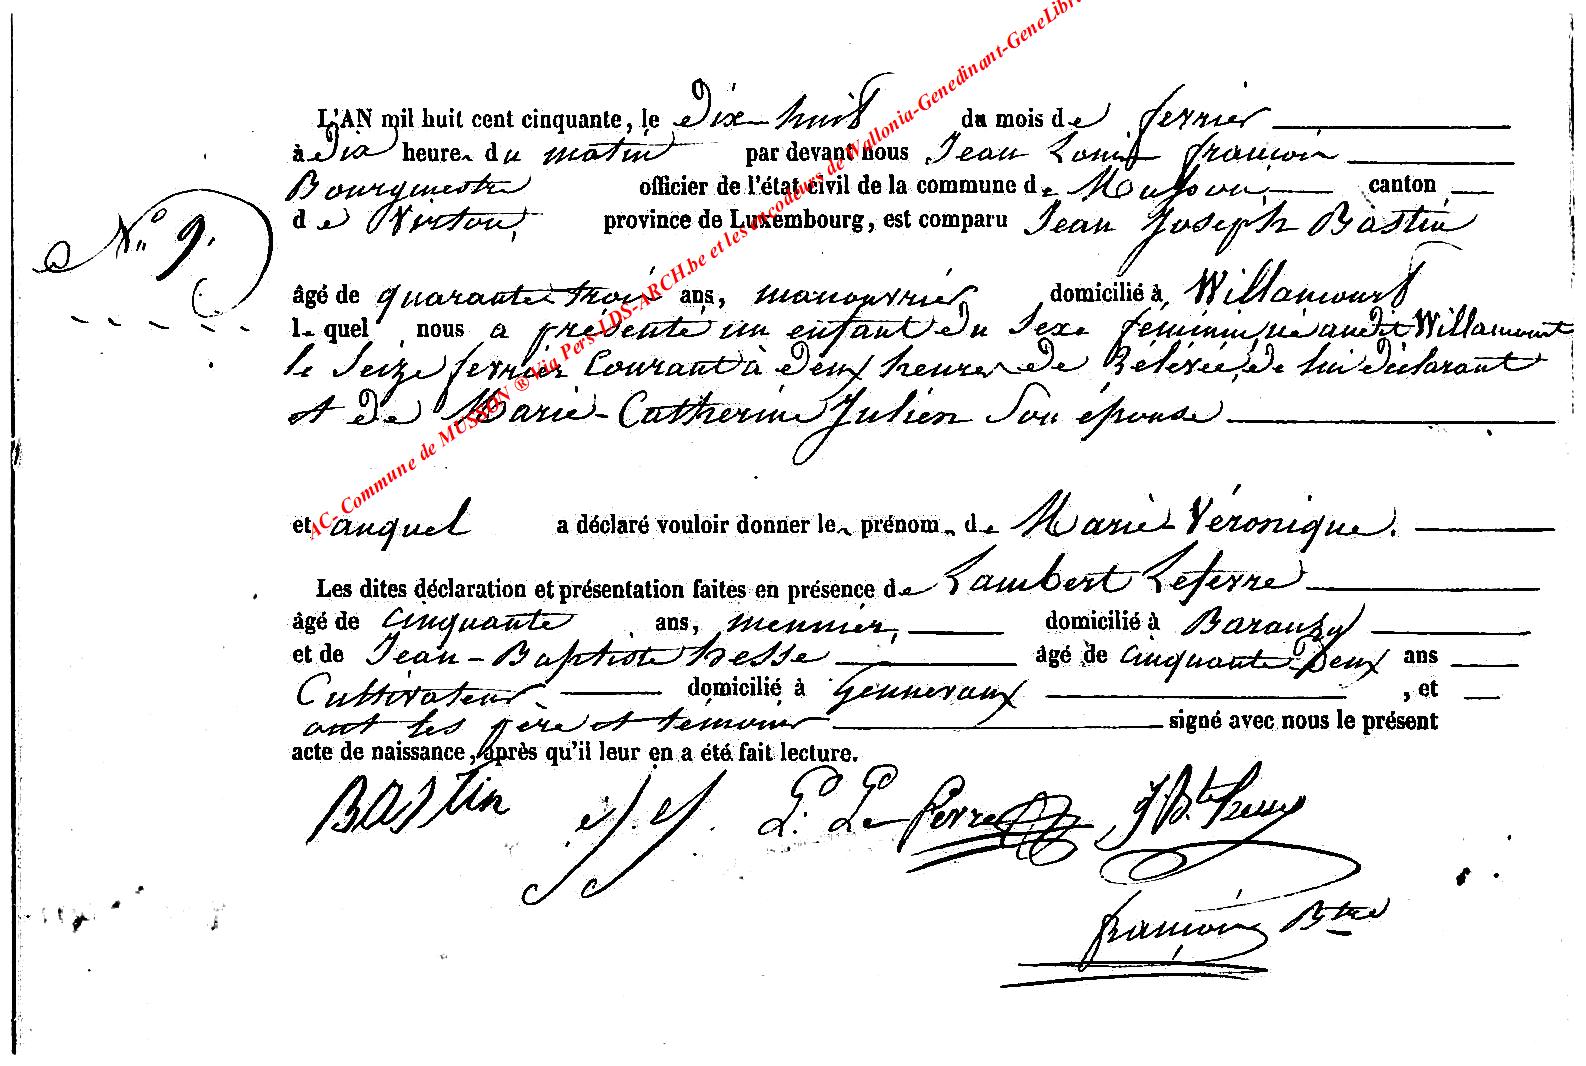 L'AN mil huit cent cinquante, le dix-huit du mois de fevrier
à dix heure du matin par devant nous Jean Louis françois
Bourgmestre officier de l'état civil de la commune de Musson, canton
de Virton, province de Luxembourg, est comparu Jean Joseph Bastin
N° 9.
âgé de quarante trois ans, manouvrier domicilié à Willancourt
lequel nous a présenté un enfant du sexe féminin, né audit Willancourt
le seize fevrier courant à deux heures de Relevée, de lui déclarant
et de Marie-Catherine Julien son épouse
et auquel a déclaré vouloir donner le prénom de Marie-Véronique.
Les dites déclaration et présentation faites en présence de Lambert Lefevre
âgé de cinquante ans, meunier, domicilié à Baranzy
et de Jean-Baptiste hesse âgé de cinquante-deux ans
Cultivateur domicilié à Gennevaux , et
ont les père et témoins signé avec nous le présent
acte de naissance, après qu'il leur en a été fait lecture.
BAStin j. j. L. Le fevre JBte hesse
françois Btre
AC- Commune de MUSSON ® Via Pers-LDS-ARCH.be et les encodeurs de Wallonia-Genedinant-GeneLibr